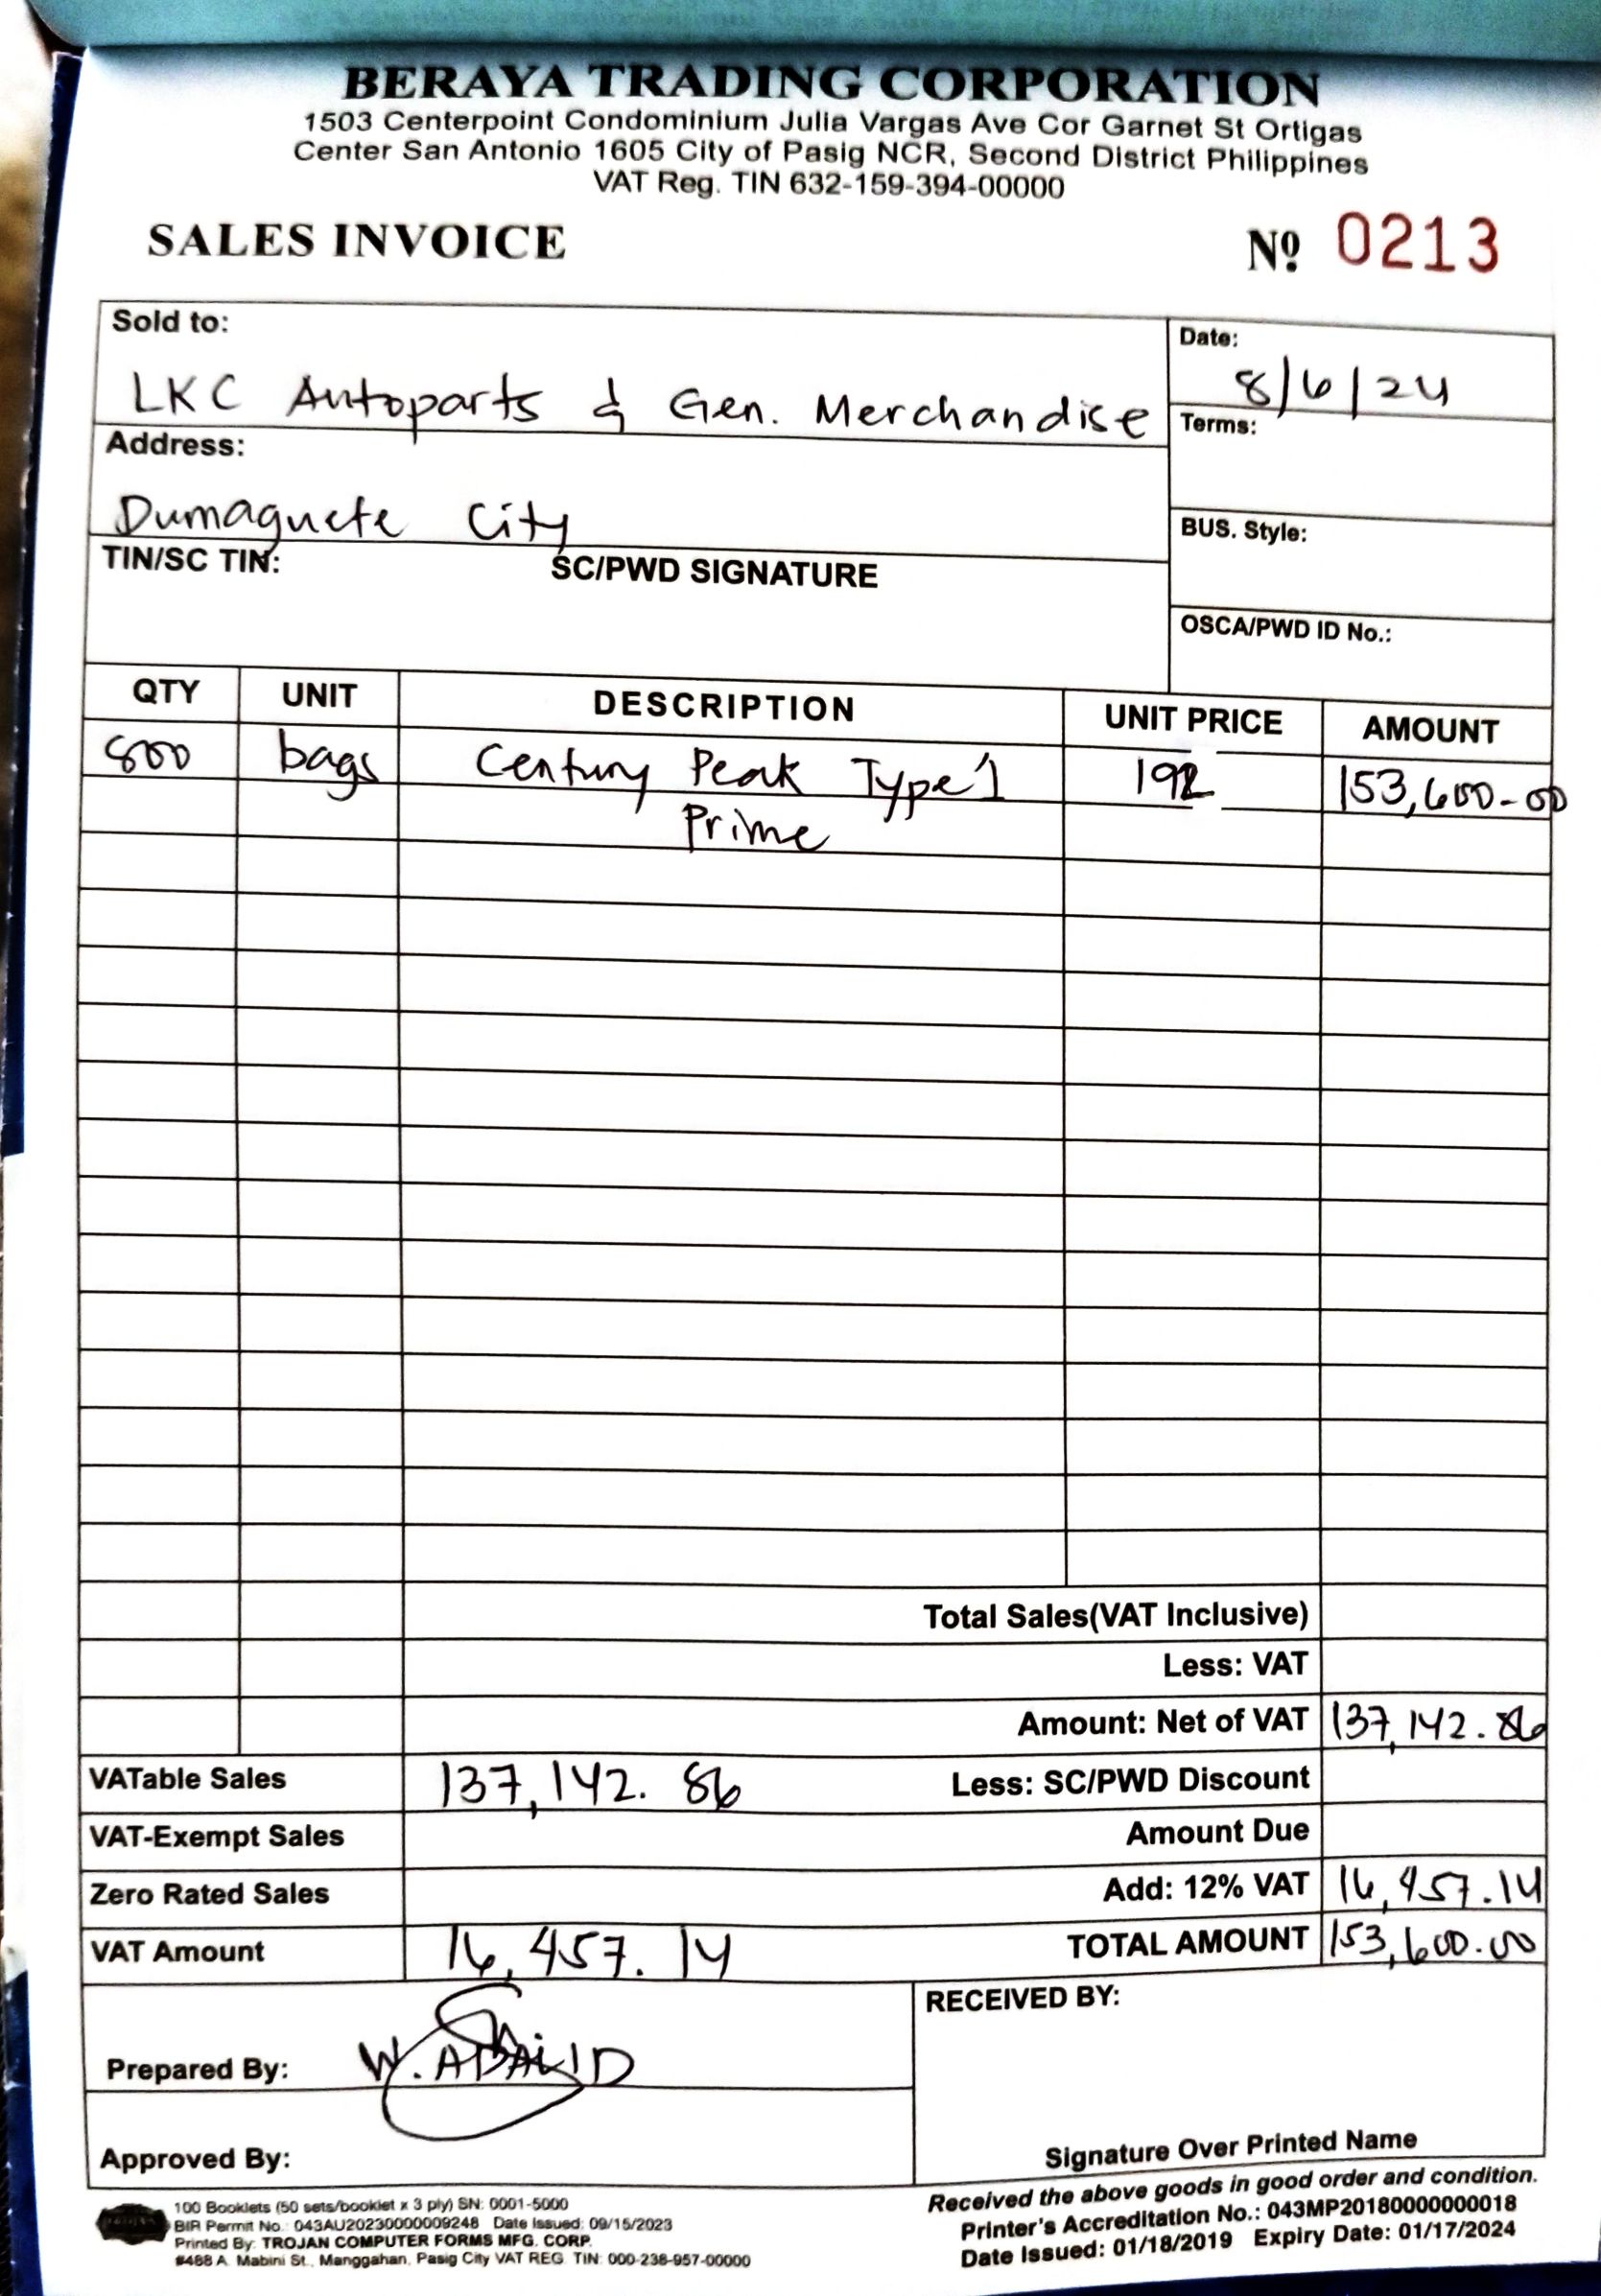 BERAYA TRADING CORPORATION
1503 Centerpoint Condominium Julia Vargas Ave Cor Garnet St Ortigas
Center San Antonio 1605 City of Pasig NCR, Second District Philippines
VAT Reg. TIN 632-159-394-00000
SALES INVOICE Nº 0213
Sold to:
LKC Autoparts & Gen. Merchandise
Date:
8/6/24
Address:
Dumaguete City
Terms:
TIN/SC TIN: SC/PWD SIGNATURE
BUS. Style:
OSCA/PWD ID No.:
QTY UNIT DESCRIPTION UNIT PRICE AMOUNT
800 bags Century Peak Type 1 192 153,600-00
Prime
Total Sales(VAT Inclusive)
Less: VAT
Amount: Net of VAT 137,142.86
VATable Sales 137,142.86 Less: SC/PWD Discount
VAT-Exempt Sales Amount Due
Zero Rated Sales Add: 12% VAT 16,457.14
VAT Amount 16,457.14 TOTAL AMOUNT 153,600.00
Prepared By: W. ABALID
RECEIVED BY:
Approved By:
Signature Over Printed Name
Received the above goods in good order and condition.
Printer's Accreditation No.: 043MP20180000000018
Date Issued: 01/18/2019 Expiry Date: 01/17/2024
100 Booklets (50 sets/booklet x 3 ply) SN: 0001-5000
BIR Permit No.: 043AU20230000009248 Date Issued: 09/15/2023
Printed By: TROJAN COMPUTER FORMS MFG. CORP.
#468 A. Mabini St., Manggahan, Pasig City VAT REG. TIN: 000-238-957-00000